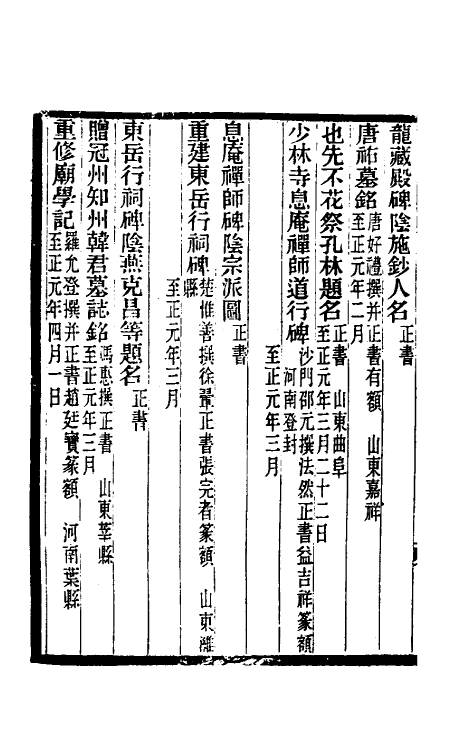 龍藏殿碑陰施鈔人名正書
唐祐墓銘唐好禮撰并正書有額　山東嘉祥
至正元年二月
也先不花祭孔林題名正書　山東曲阜
至正元年三月二十二日
少林寺息庵禪師道行碑沙門邵元撰法然正書益吉祥篆額
河南登封
至正元年三月
息庵禪師碑陰宗派圖正書
重建東岳行祠碑楚惟善撰徐翿正書張完者篆額　山東濰
縣
至正元年三月
東岳行祠碑陰燕克昌等題名正書
贈冠州知州韓君墓誌銘馮惠撰正書　山東莘縣
至正元年三月
重修廟學記羅允登撰并正書趙廷寶篆額　河南葉縣
至正元年四月一日